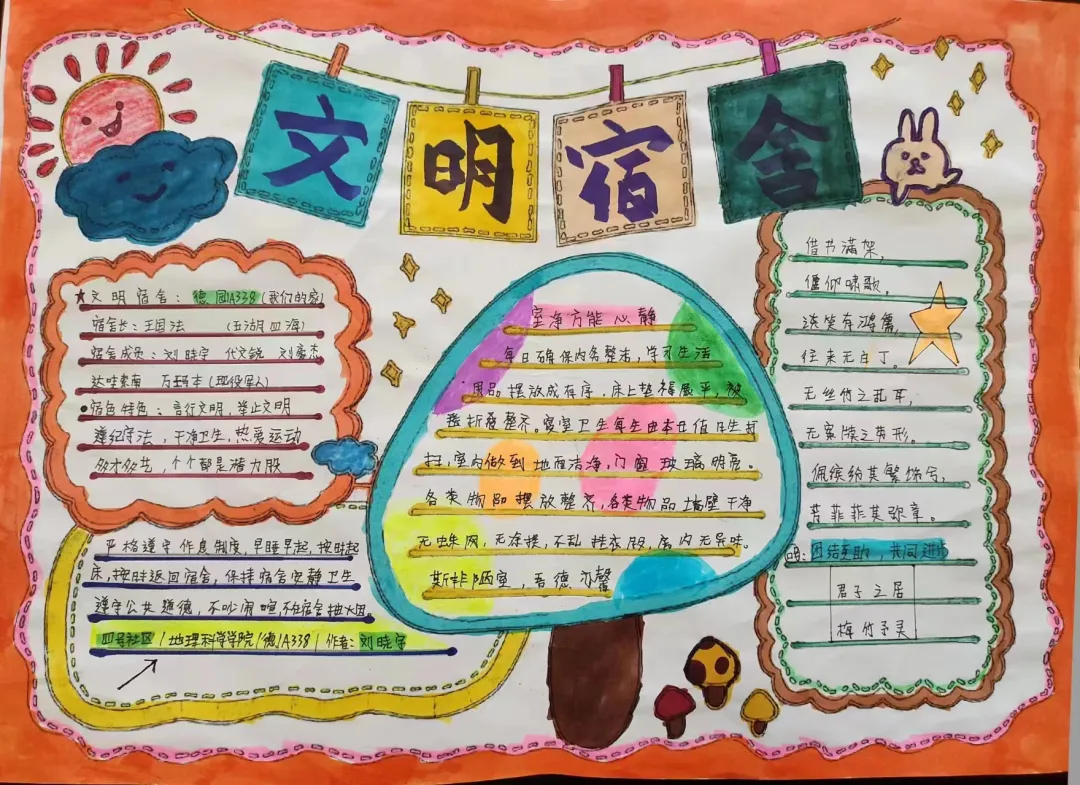 文明宿舍
★文明宿舍：德园A338(我们的家)
宿舍长：王国法 (五湖四海)
宿舍成员：刘晓宇 代文锐 刘彦杰
达哇索南 万玛本(现役军人)
●宿色特色：言行文明，举止文明
遵纪守法，干净卫生，热爱运动
多才多艺，个个都是潜力股
严格遵守作息制度，早睡早起，按时起
床，按时返回宿舍，保持宿舍安静卫生
遵守公共道德，不吵闹喧，不在宿舍抽大烟。
四号社区/地理科学学院/德/A338/作者：刘晓宇
室净方能心静
每日确保内务整洁，学习生活
用品摆放成有序，床上垫褥展平，被
叠折叠整齐。寝室卫生每生由本日值日生打
扫，室内做到地面洁净，门窗玻璃明亮。
各类物品摆放整齐，各类物品墙壁干净
无蛛网，无涂摸，不乱挂衣服，房内无异味。
斯非陋室，吾德亦馨
借书满架，
偃仰啸歌。
谈笑有鸿儒，
往来无白丁。
无丝竹之乱耳，
无案牍之劳形。
佩缤纷其繁饰兮，
芳菲菲其弥章。
团结互助，共同进步
君子之居
梅竹予灵